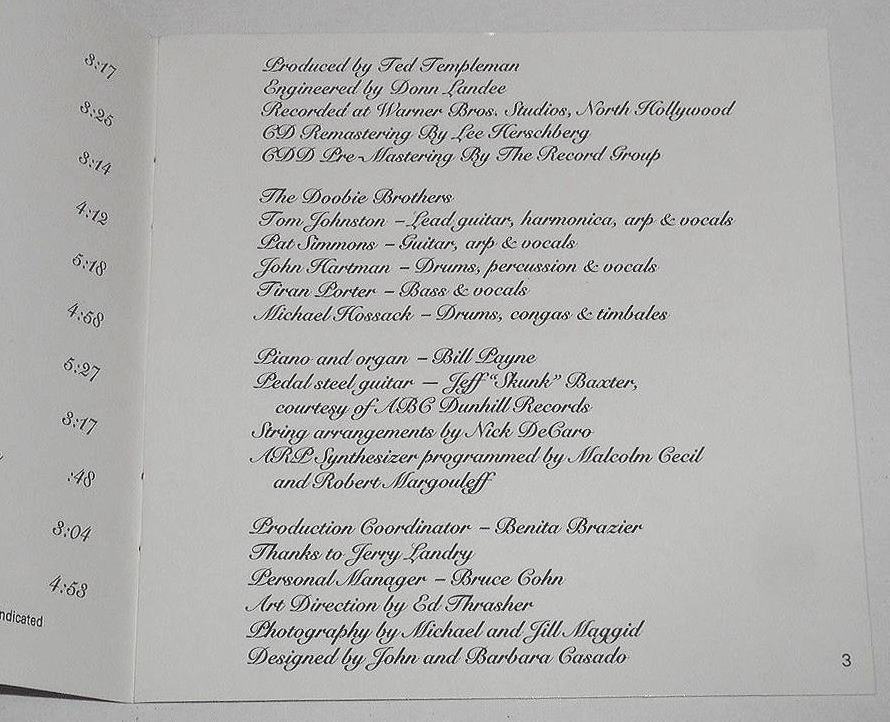 3:17
3:25
3:14
4:12
5:18
4:58
5:27
3:17
:48
3:04
4:53
ndicated
Produced by Ted Templeman
Engineered by Donn Landee
Recorded at Warner Bros. Studios, North Hollywood
CD Remastering By Lee Herschberg
CDD Pre-Mastering By The Record Group
The Doobie Brothers
Tom Johnston – Lead guitar, harmonica, arp & vocals
Pat Simmons – Guitar, arp & vocals
John Hartman – Drums, percussion & vocals
Tiran Porter – Bass & vocals
Michael Hossack – Drums, congas & timbales
Piano and organ – Bill Payne
Pedal steel guitar — Jeff "Skunk" Baxter,
courtesy of ABC Dunhill Records
String arrangements by Nick DeCaro
ARP Synthesizer programmed by Malcolm Cecil
and Robert Margouleff
Production Coordinator – Benita Brazier
Thanks to Jerry Landry
Personal Manager – Bruce Cohn
Art Direction by Ed Thrasher
Photography by Michael and Jill Maggid
Designed by John and Barbara Casado
3